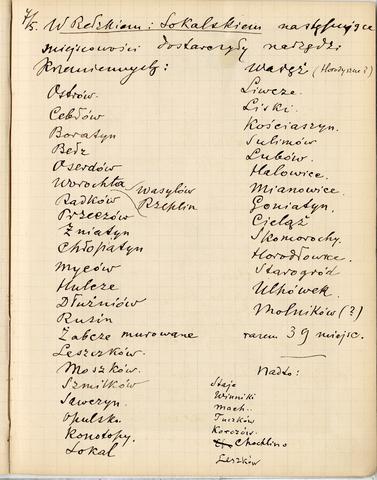 4/5. W Bełzkiem i Sokalskiem następujące
miejscowości dostarczyły narzędzi
krzemiennych:
Ostrów.
Cebłów.
Boratyn
Bełz
Oserdów.
Worochta
Radków
Przeczów
Wasylów
Rzeplin
Żniatyn
Chłopiatyn
Myców
Hulcze
Dłużniów
Rusin
Żabcze murowane
Leszczków.
Moszków.
Szmitków
Sawczyn.
Opulsko.
Konotopy.
Sokal
Waręż (Horodyszcze?)
Liwcze.
Liski.
Kościaszyn.
Sulimów
Łubów.
Hatowice.
Mianowice.
Goniatyn.
Cieląż
Skomorochy.
Horodłowice.
Starogród
Uhłówek.
Wolników (?)
razem 39 miejsc.
Nadto:
Staje
Winniki
Mach..
Tuczków
Korczów.
Chochlino
Leszków